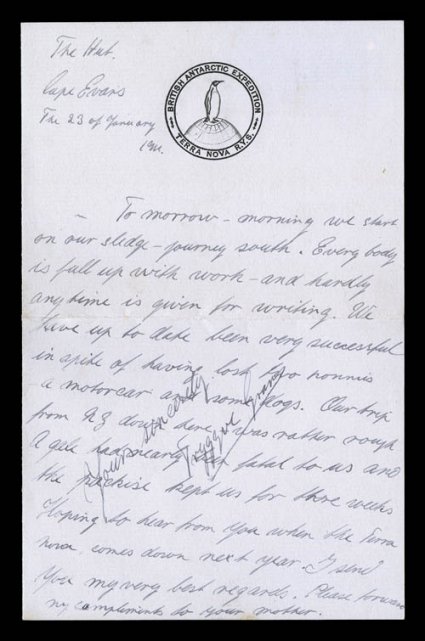 The Hut.
Cape Evans
The 23 of January
1911.
BRITISH ANTARCTIC EXPEDITION
TERRA NOVA R.Y.S.
- To morrow - morning we start
on our sledge - journey south. Every body
is full up with work - and hardly
any time is given for writing. We
have up to date been very successful
in spite of having lost two
a motorcar and some dogs. Our trip
from NZ down here was rather rough
A gale had nearly fatal to us and
the kept us for three weeks
Hoping to hear from you when the Terra
nova comes down next year. I send
you my very best regards. Please forward
my complements to your mother.
Yours sincerely
Tryggve Gran